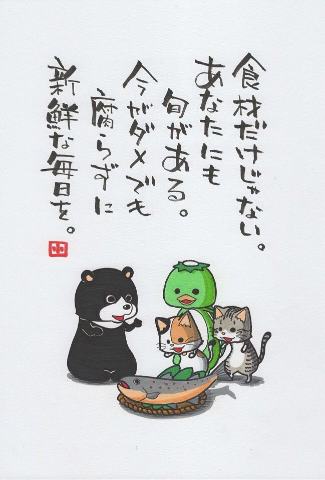 食材だけじゃない。
あなたにも
旬がある。
今がダメでも
腐らずに
新鮮な毎日を。